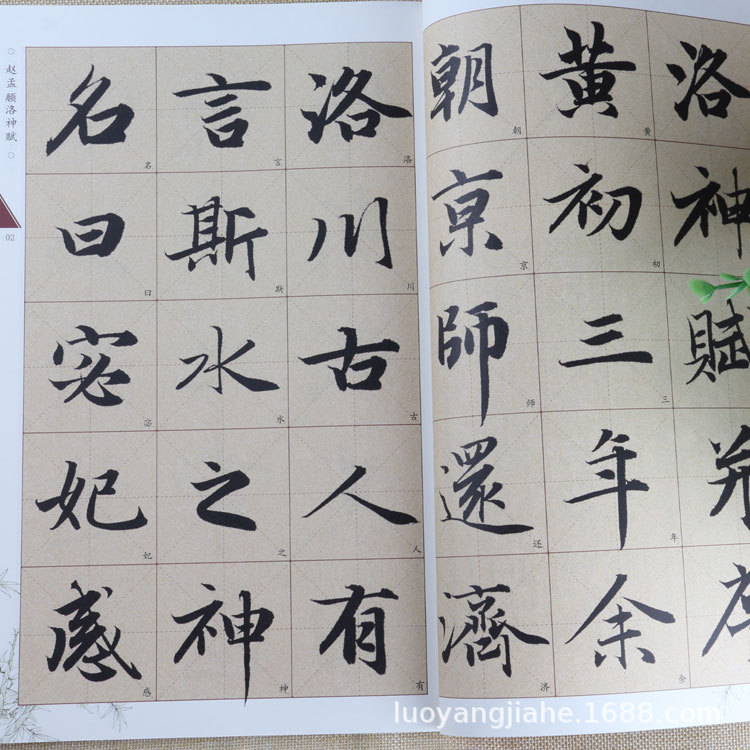 洛神賦并
黄初三年余
黄初三年余
朝京師還濟
朝京师还济
洛川古人有
洛川古人有
言斯水之神
言斯水之神
名曰宓妃感
名曰宓妃感
赵孟頫洛神赋
02
luoyangjiahe.1688.com